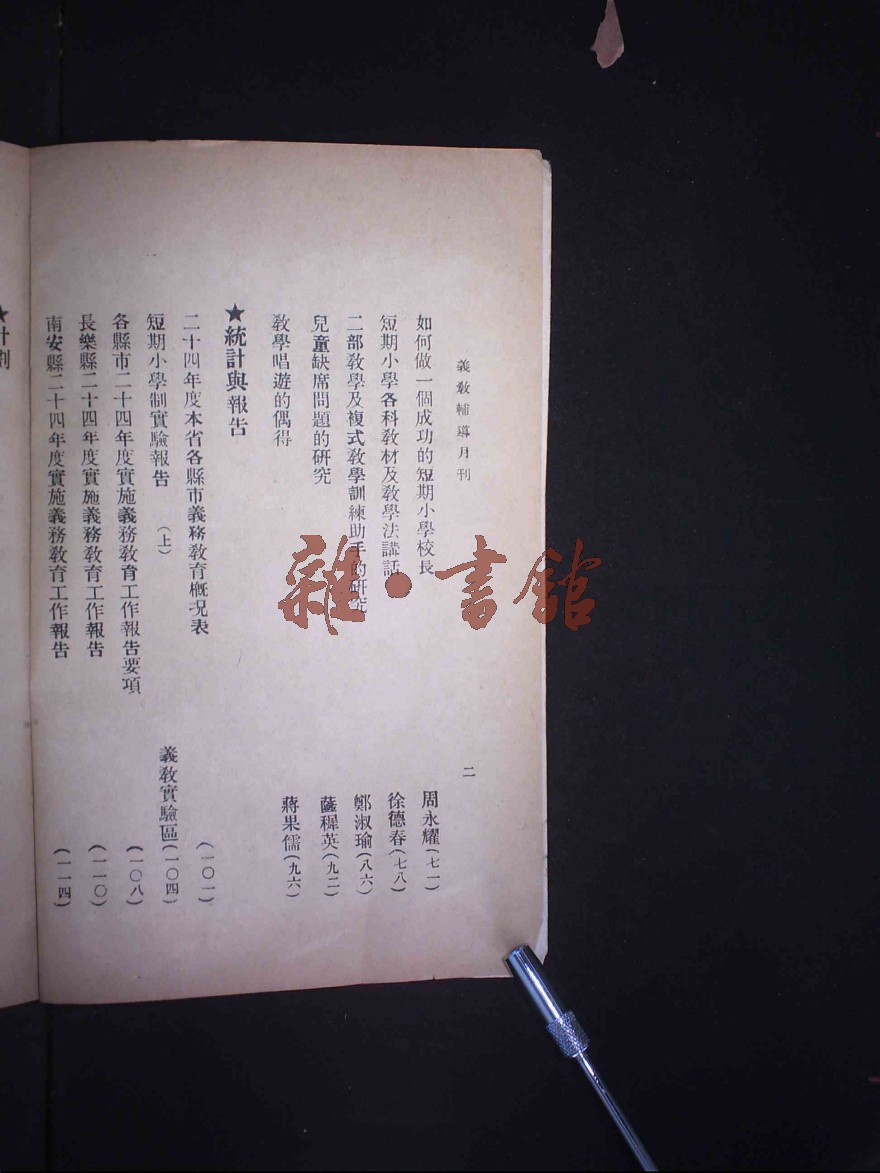 義教輔導月刊
二
如何做一個成功的短期小學校長 周永耀(七一)
短期小學各科教材及教學法講話 徐德春(七八)
二部教學及複式教學訓練助手的研究 鄭淑瑜(八六)
兒童缺席問題的研究 薩穉英(九二)
教學唱遊的偶得 蔣果儒(九六)
★統計與報告
二十四年度本省各縣市義務教育概況表 (一〇一)
短期小學制實驗報告(上) 義教實驗區(一〇四)
各縣市二十四年度實施義務教育工作報告要項 (一〇八)
長樂縣二十四年度實施義務教育工作報告 (一一〇)
南安縣二十四年度實施義務教育工作報告 (一一四)
★計劃
雜·書館